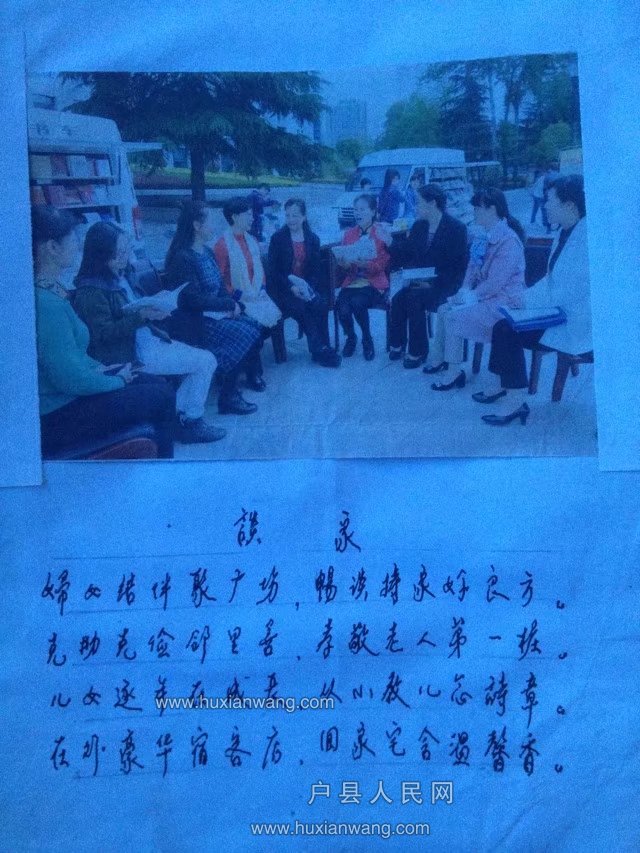 談 家
婦女结伴聚广场，暢谈持家好良方。
克助克俭邻里善，孝敬老人第一桩。
儿女逐年在成长，从小教儿念詩章。
www.huxianwang.com
在外豪华宿客店，回家宅舍温馨香。
户县人民网
www.huxianwang.com